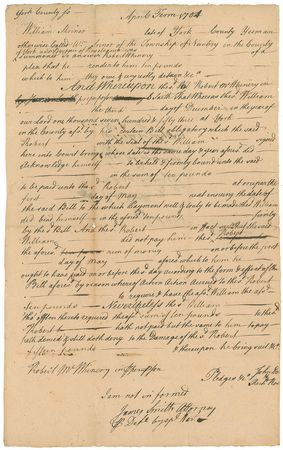 York County ss April Term 1754
William Stevier late of York County Yeoman
otherwise Called Wm of the Township of in the County
of York was
Summoned to answer Robert McWhinery in
plea that he render to him ten pounds
which to him they owe & unjustly detain &c
And Whereupon the sd Robert McWhinery in
proper person saith That Whereas the said William
the third day of December in the year of
our Lord one thousand seven hundred fifty three at York
in the County afsd by his certain Bill obligatory which the said
Robert with the Seal of the sd William signed
here into Court brings whose date is the same day & year aforesd did
Acknowledge himself to be held & firmly bound unto the said
in the sum of ten pounds
to be paid unto the sd Robert at or upon the
first day of May next ensuing the date of
the said Bill to the which Payment well & truly to be made the sd William
did bind himself in the aforesd ten pounds firmly
by the sd Bill And the sd Robert in fact
William did not pay him the sd Robert
the aforesd sum of money on or before the first
day of May aforesd which to him he
ought to have paid on or before the sd day according to the form & effect of the
Bill aforesd by reason whereof Action Accrued to the sd Robert
to require & have the afsd William the afsd
ten pounds Nevertheless the sd William
tho often thereto required the afsd sum of ten pounds to the sd
Robert hath not paid but the same to him to pay
hath denied & still doth deny to the Damage of the sd Robert
fifteen pounds & thereupon he brings suit &c
Robert McWhinery
Pledges &c John Doe
I am not informed
James Smith Attorney